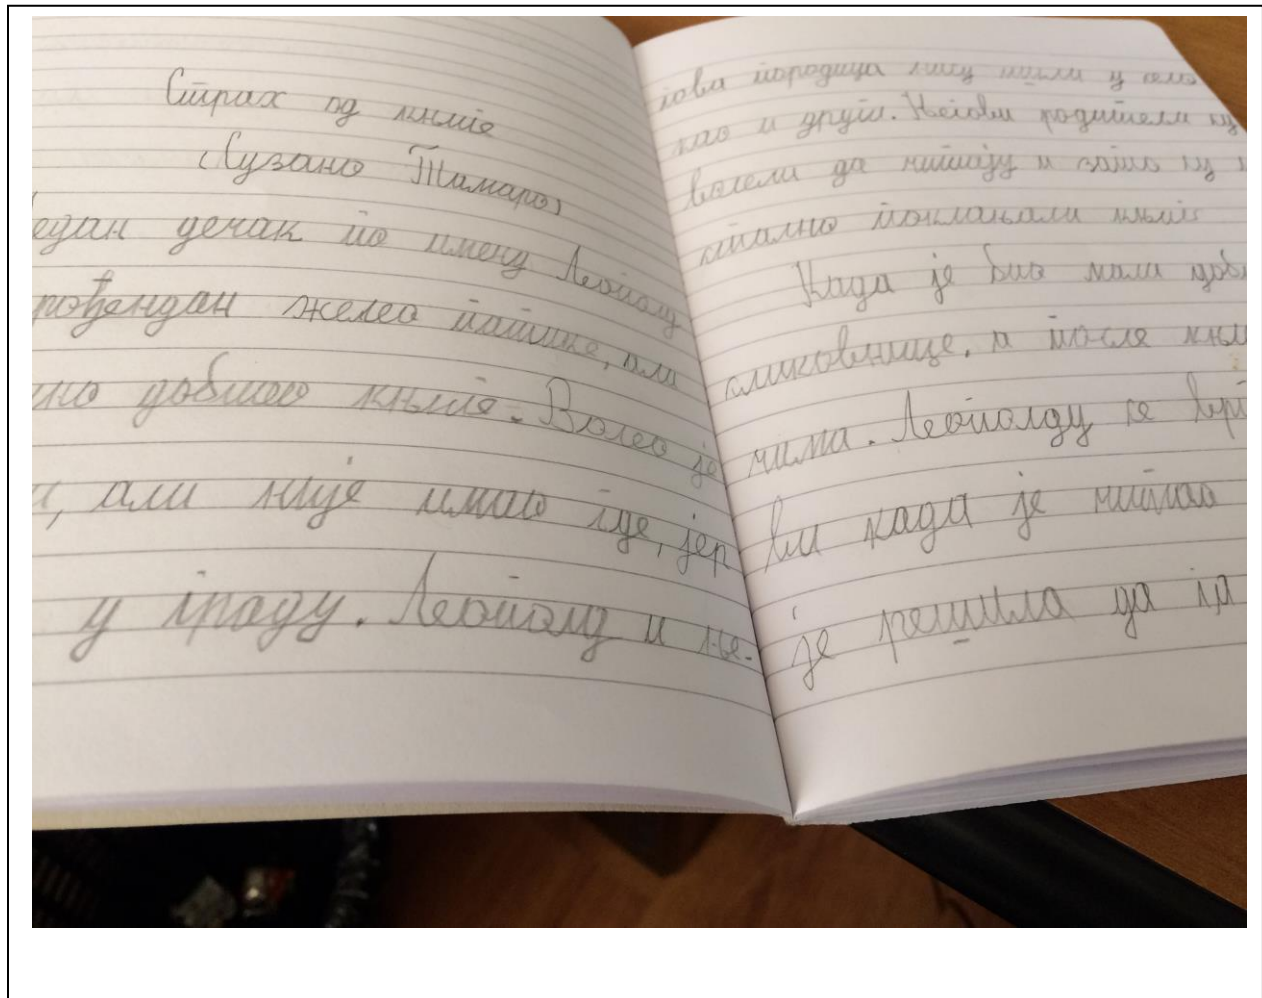 Страх од књиге
(Сузано Тамаро)
един дечак по имену Леополд
рођендан желео патике, али
но добијао књиге. Волео је
али није имао где, јер
у граду. Леополд и ње-
гова породица нису ишли у село
као и други. Његови родитељи су
волели да читају и зато су
стално поклањали књиге
Када је био мали доби
сликовнице, а после књи
чима. Леополду се врт
ви када је читао
је решила да га